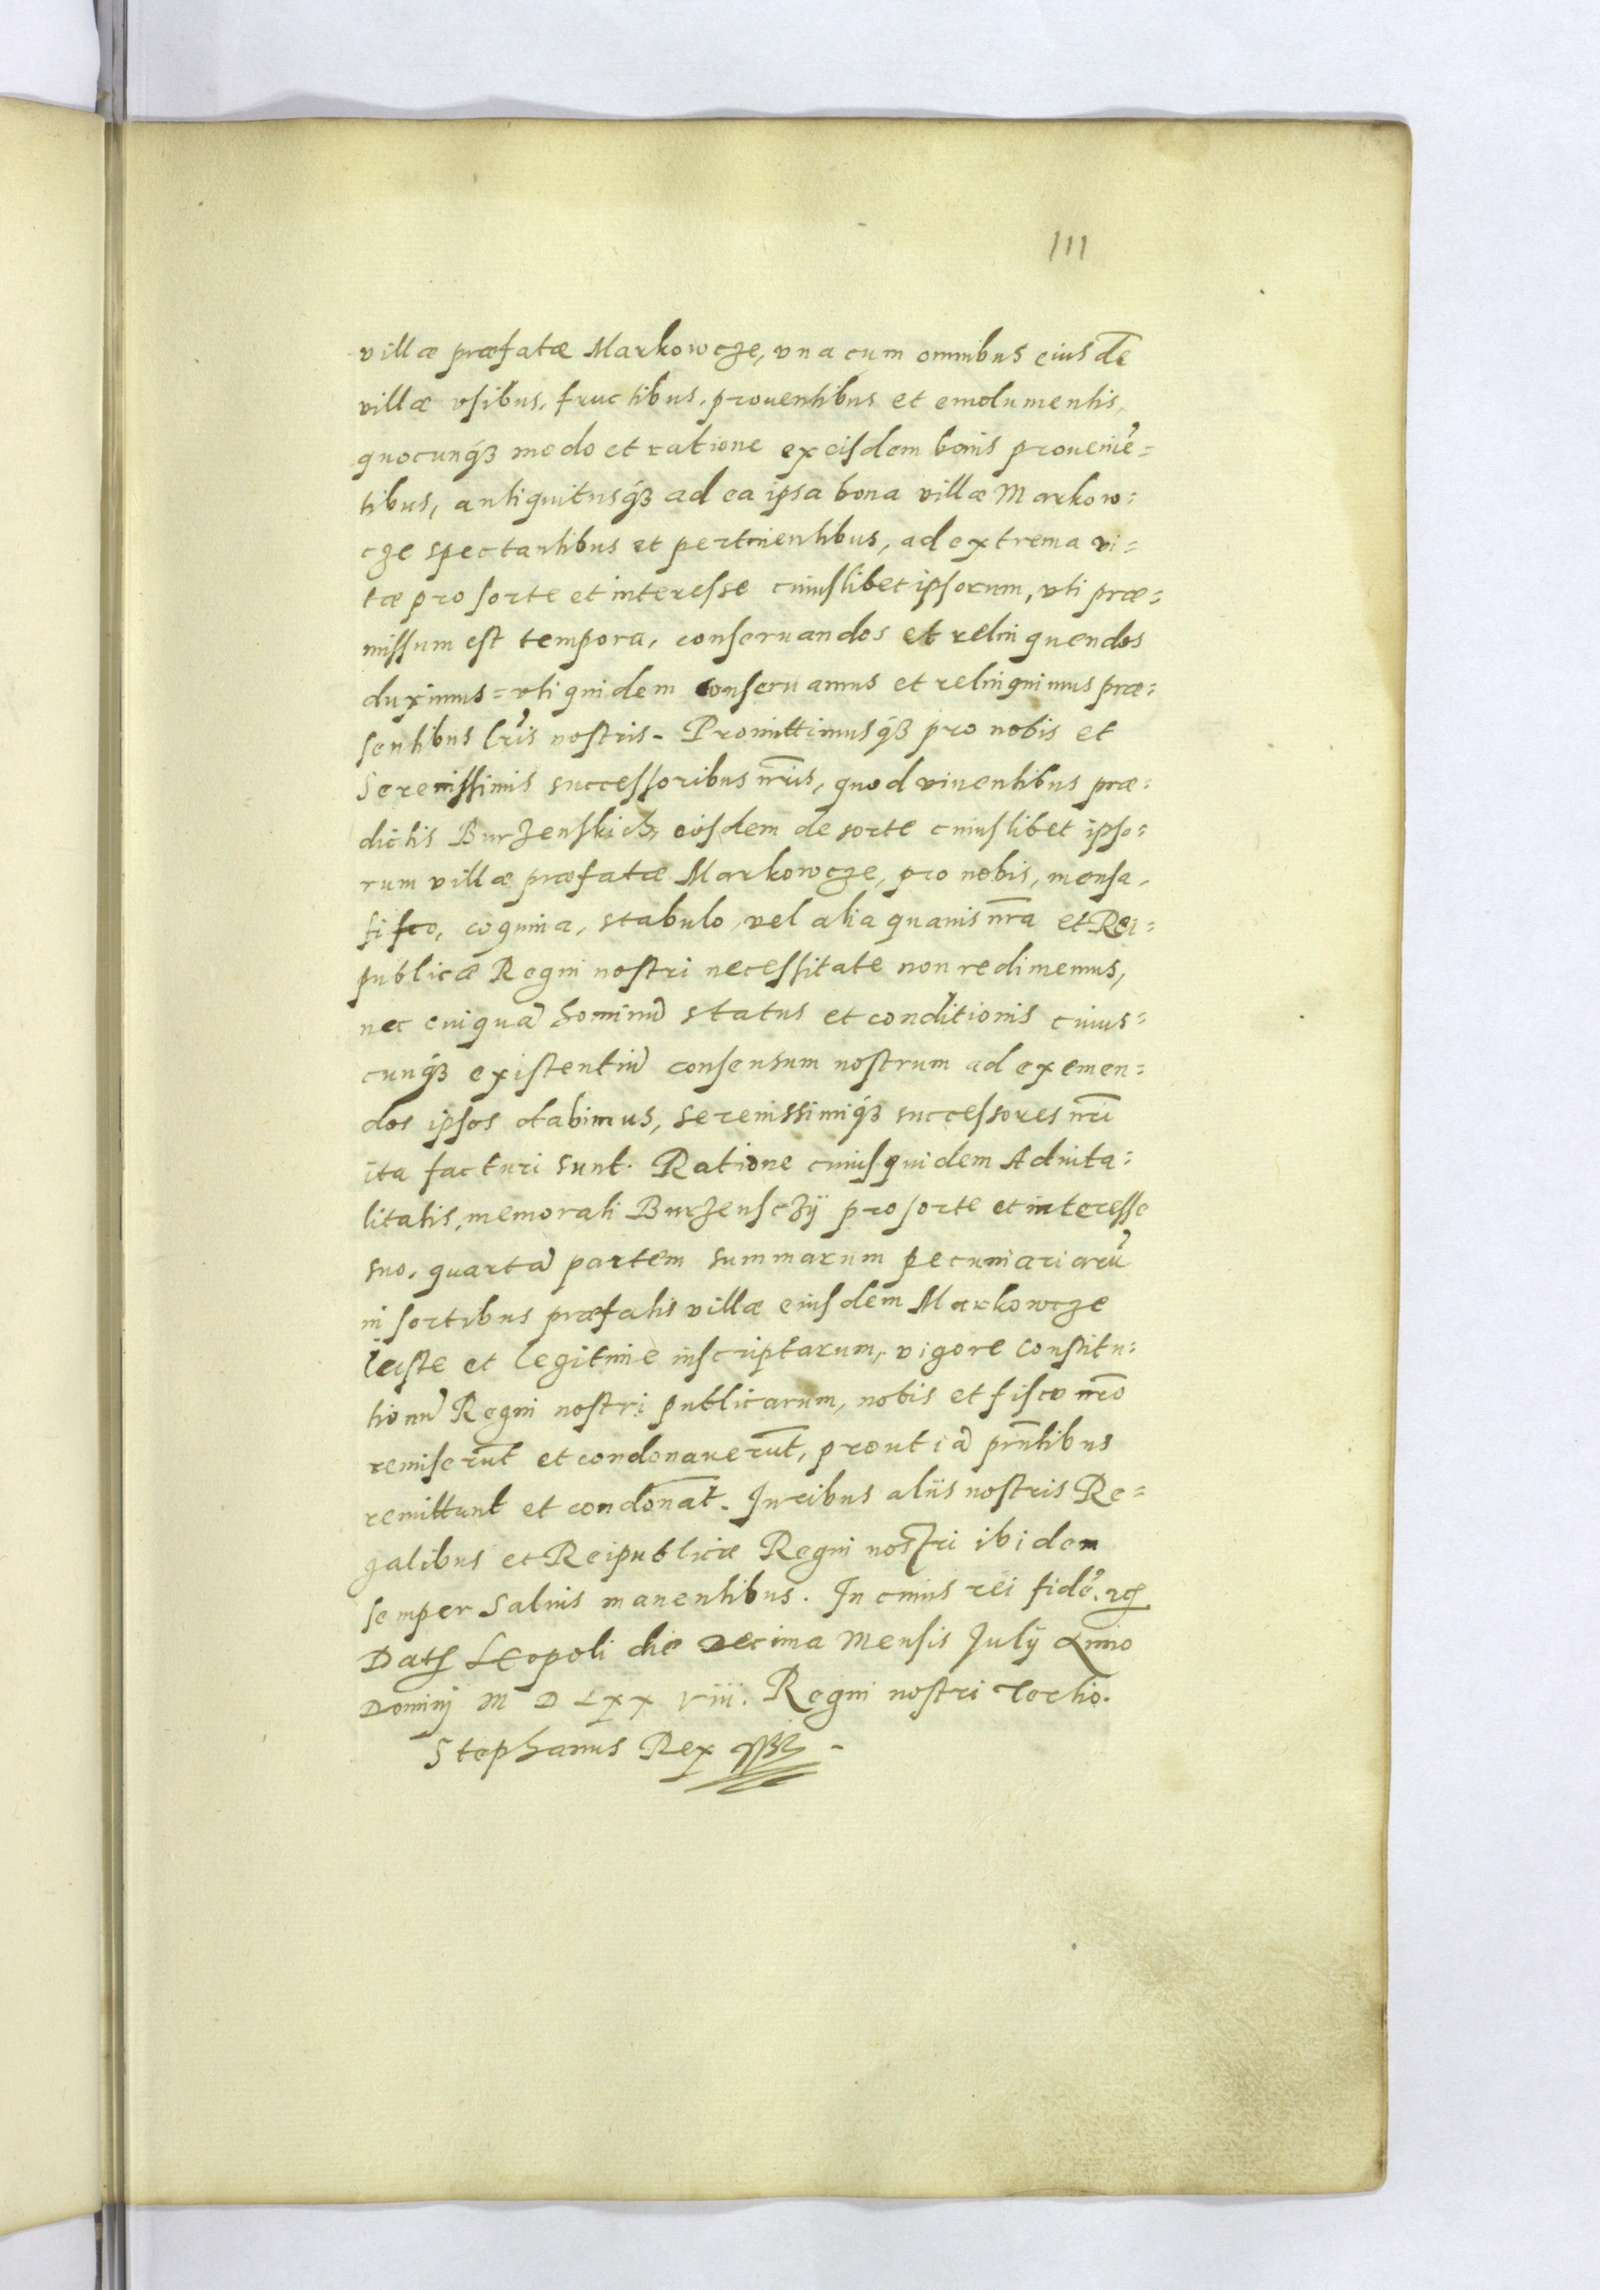 111
villæ præfatæ Markowcze, vna cum omnibus eiusdē
villæ vsibus, fructibus, prouentibus et emolumentis,
quocunq́ꝫ modo et ratione ex eisdem bonis prouenie᷒=
tibus, antiquitusq́ꝫ ad ea ipsa bona villæ Markow=
cze spectantibus et pertinentibus, ad extrema vi=
tæ pro sorte et interesse cuiuslibet ipsorum, vti præ=
missum est tempora, conseruandos et relinquendos
duximus = vti quidem conseruamus et relinquimus præ=
sentibus lr̃is nostris. Promittimusq́ꝫ pro nobis et
Serenissimis successoribus nr̃is, quod viuentibus præ=
dictis Burzenskich, eisdem de sorte cuiuslibet ipso=
rum villæ præfatæ Markowcze, pro nobis, mensa,
fisco, coquina, stabulo, vel alia quauis nr̃a et Rei=
publicæ Regni nostri necessitate non redimemus,
nec cuiquā hominū status et conditionis cuius=
cunq́ꝫ existentiū consensum nostrum ad exemen=
dos ipsos dabimus, serenissimiq́ꝫ successores nr̃i
ita facturi sunt. Ratione cuiusquidem Aduita=
litatis, memorati Burzensczÿ pro sorte et interesse
suo, quartā partem summarum pecuniariarū
in sortibus præfatis villæ eiusdem Markowcze
iuste et legitime inscriptarum, vigore Constitu=
tionū Regni nostri publicarum, nobis et fisco nr̃o
remiserūt et condonauerūt, prout iā pr̃ntibus
remittunt et condonāt. Iuribus aliis nostris Re=
galibus et Reipublicæ Regni nostri ibidem
semper saluis manentibus. In cuius rei fidē.
Dat Leopoli die decima Mensis Julÿ Anno
Dominj M D LXX viii. Regni nostri Tertio.
Stephanus Rex